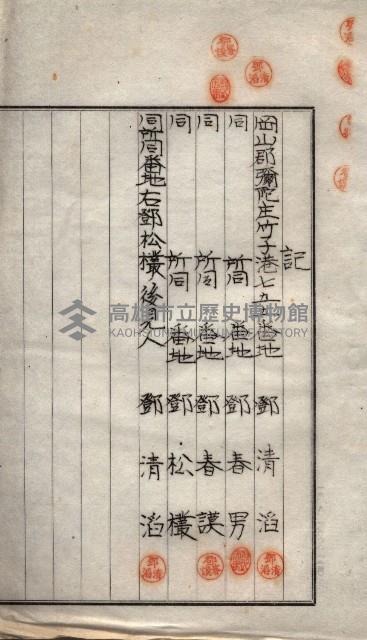 記
岡山郡彌陀庄竹子港七九五番地 鄧清滔
同 所同番地 鄧春男
同 所同番地 鄧春謨
同 所同番地 鄧松欉
同所同番地右鄧松欉後見人 鄧清滔
高雄市立歷史博物館
KAOHSIUNG MUSEUM OF HISTORY